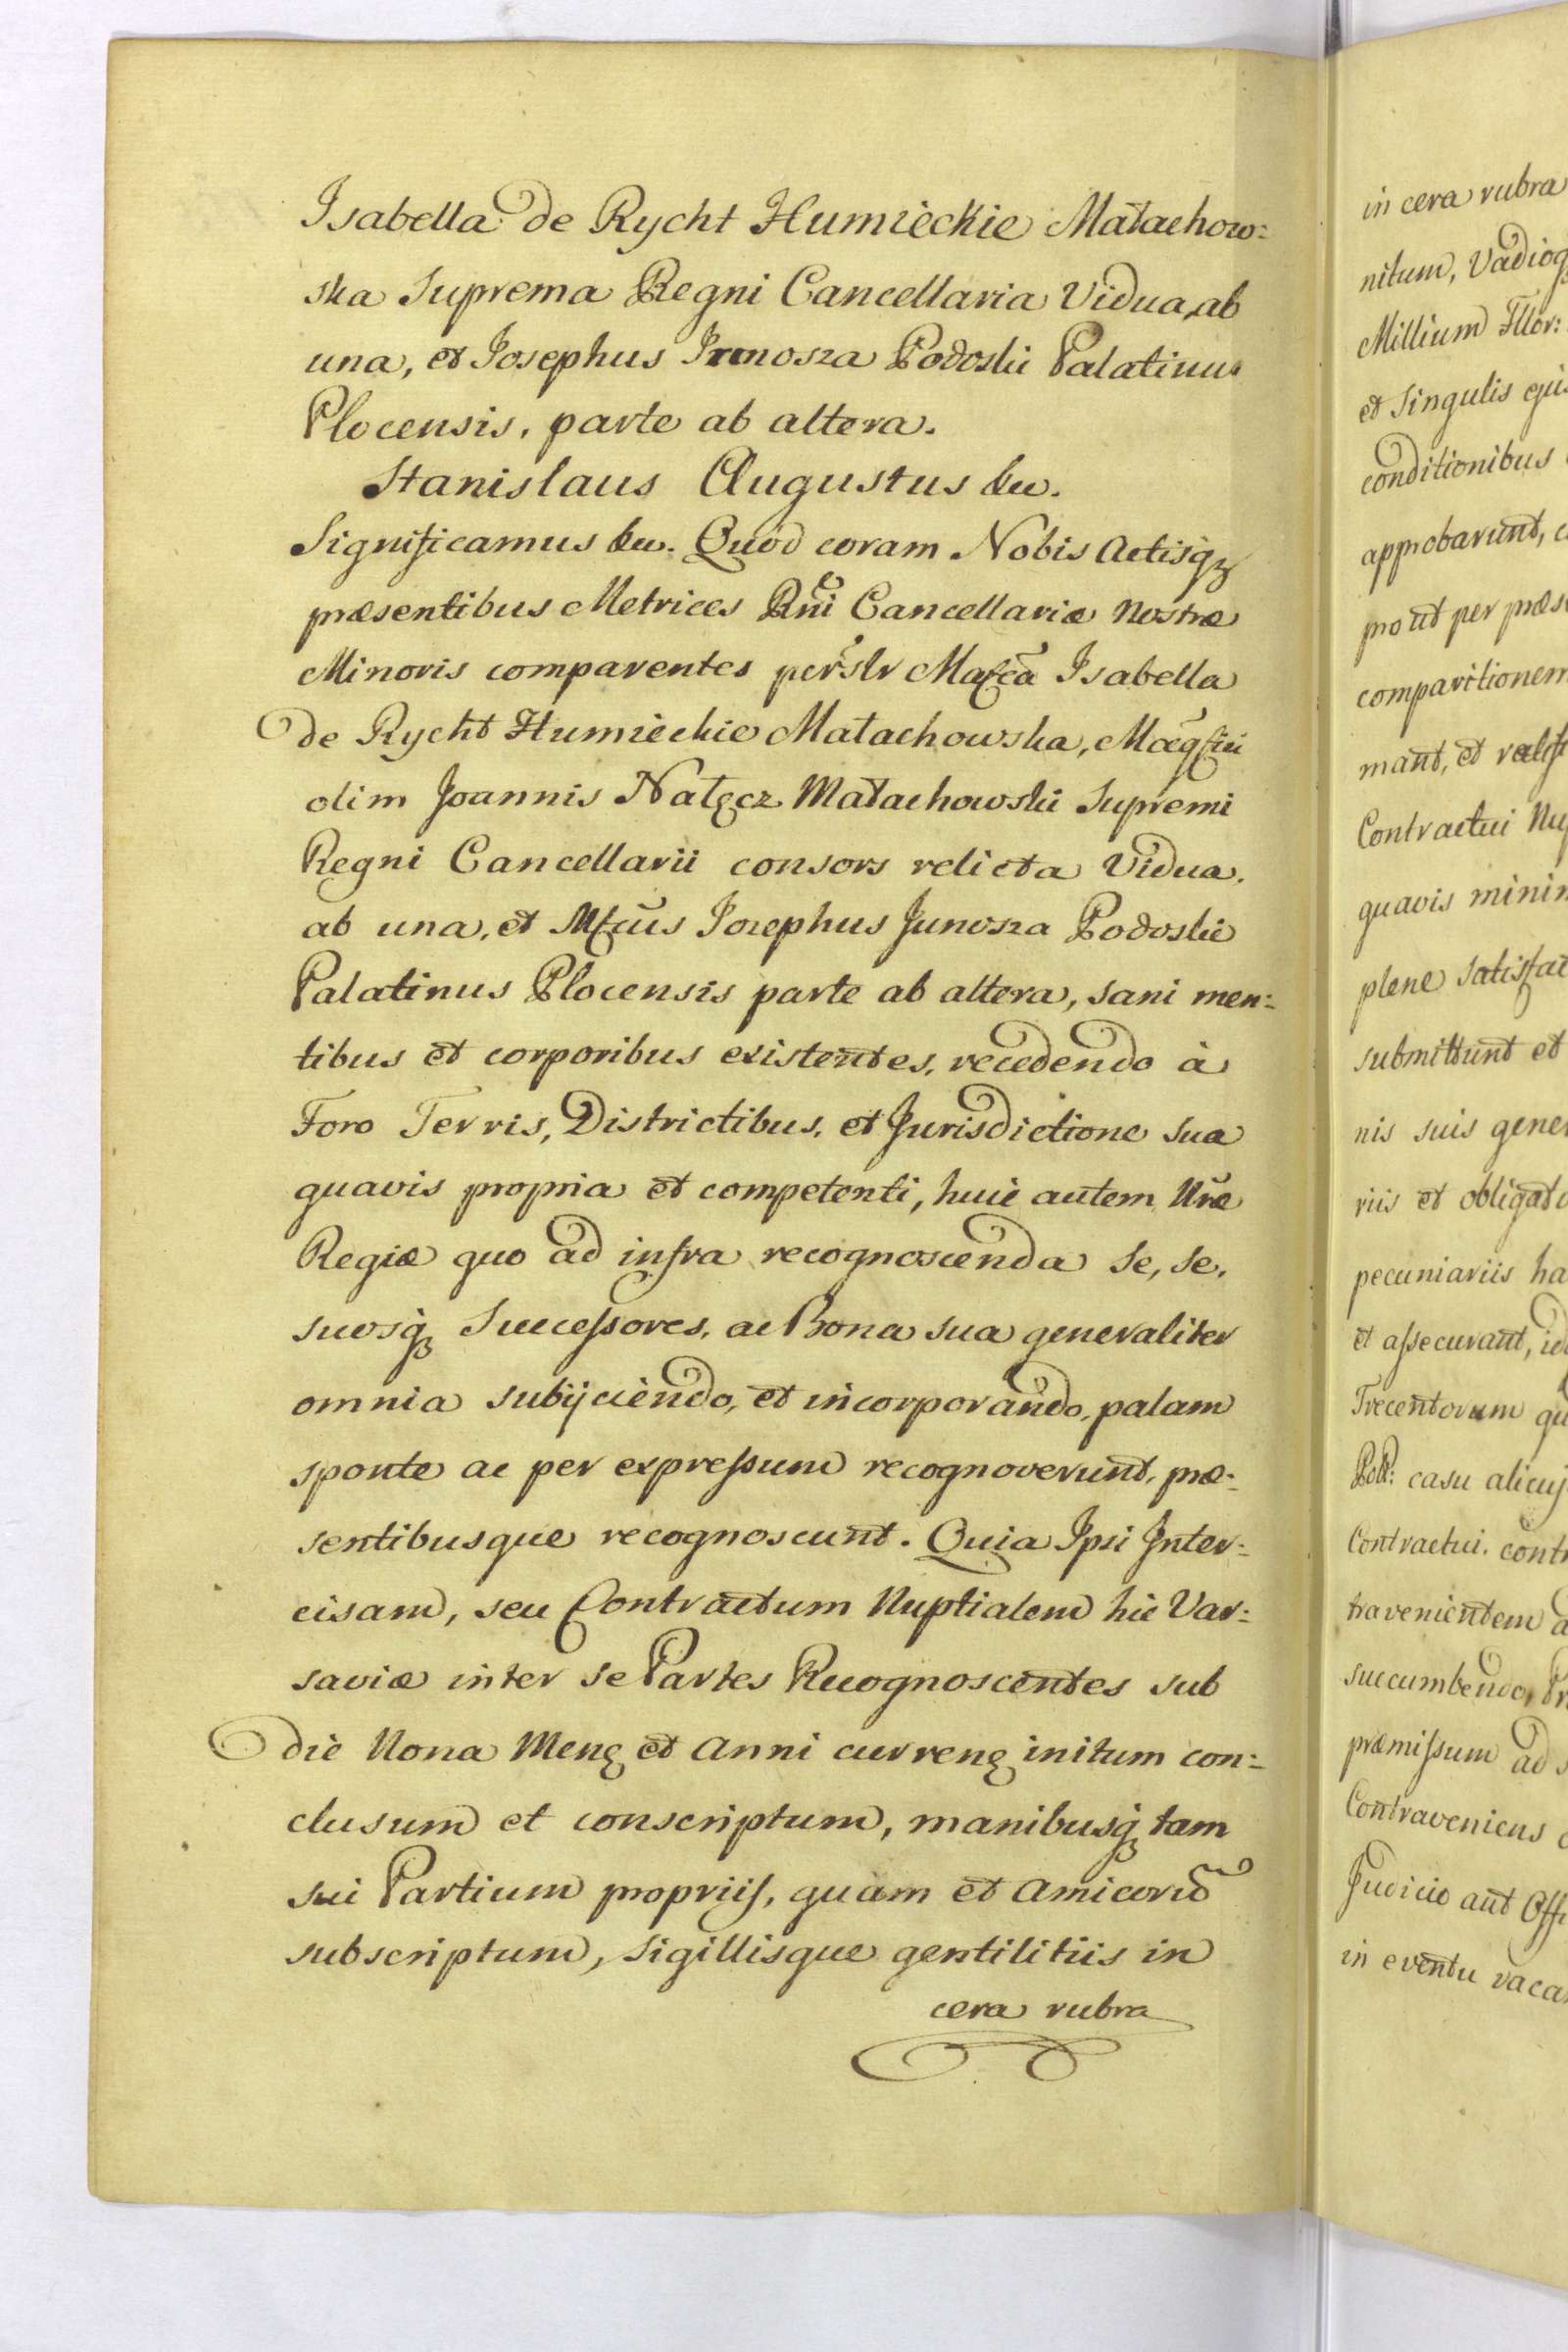 Isabella de Rycht Humieckie Małachow:
ska Suprema Regni Cancellaria Vidua, ab
una, et Josephus Junosza Podoski Palatinus
Plocensis, parte ab altera.
Stanislaus Augustus &c.
Significamus &c. Quod coram Nobis Actisqꝫ
præsentibus Metrices Rñi Cancellariæ Nostræ
Minoris comparentes persłr Mafca Isabella
de Rycht Humieckie Małachowska, Magfici
olim Joannis Nałęcz Małachowski Supremi
Regni Cancellarii consors relicta Vidua.
ab una, et Mfcus Josephus Junosza Podoski
Palatinus Plocensis parte ab altera, sani men:
tibus et corporibus existentes, recedendo à
Foro Terris, Districtibus, et Jurisdictione sua
quavis propria et competenti, huic autem Nræ
Regiæ quo ad infra recognoscenda se, se,
suosqꝫ Successores, ac Bona sua generaliter
omnia subijciendo, et incorporando, palam
sponte ac per expressum recognoverunt, præ:
sentibusque recognoscunt. Quia Ipsi Inter:
cisam, seu Contractum Nuptialem hic Var:
saviæ inter se Partes Recognoscentes sub
die Nona Mensꝫ et Anni currenꝫ initum con:
clusum et conscriptum, manibusqꝫ tam
sui Partium propriis, quam et Amicorũ
subscriptum, Sigillisque gentilitiis in
cera rubra
in cera rubra
nitum, Vadioq
Millium Fllor:
et Singulis ejus
conditionibus
approbarunt,
prout per præs
comparitionem
mant, et
Contractui Nup
quavis minim
plene satisfac
submittunt et
nis suis gener
riis et obligato
pecuniariis ha
et assecurant,
Trecentorum qu
Poll: casu alicuj
Contractui. contr
travenientem a
succumbendo, Pr
præmissum ad s
Contraveniens
Judicio aut Offi
in eventu vacan